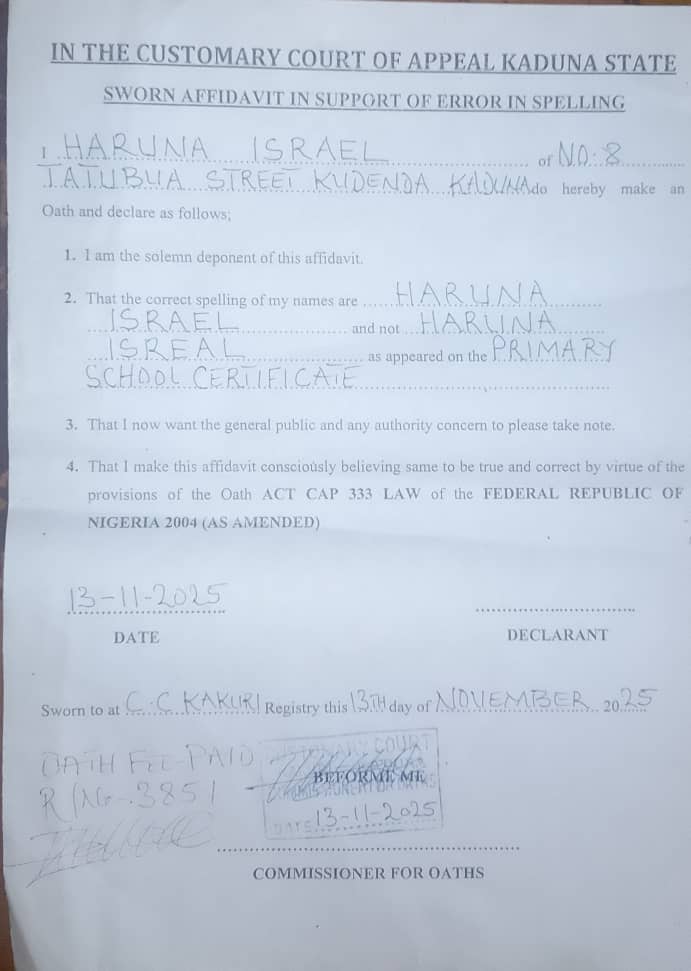 IN THE CUSTOMARY COURT OF APPEAL KADUNA STATE
SWORN AFFIDAVIT IN SUPPORT OF ERROR IN SPELLING
I HARUNA ISRAEL of NO. 8
TATUBUA STREET KUDENDA KADUNA do hereby make an
Oath and declare as follows;
1. I am the solemn deponent of this affidavit.
2. That the correct spelling of my names are HARUNA
ISRAEL and not HARUNA
ISREAL as appeared on the PRIMARY
SCHOOL CERTIFICATE
3. That I now want the general public and any authority concern to please take note.
4. That I make this affidavit consciously believing same to be true and correct by virtue of the
provisions of the Oath ACT CAP 333 LAW of the FEDERAL REPUBLIC OF
NIGERIA 2004 (AS AMENDED)
13-11-2025
DATE
DECLARANT
Sworn to at C.C KAKURI Registry this 13TH day of NOVEMBER 2025
OATH FEE PAID
COURT
BEFORME ME
R/NG-3851
DATE 13-11-2025
COMMISSIONER FOR OATHS